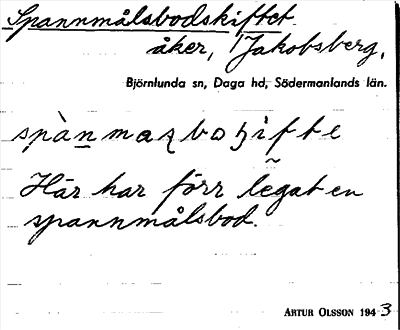 Spannmålsbodskiftet
åker, Jakobsberg,
Björnlunda sn, Daga hd, Södermanlands län.
Här har förr legat en
spannmålsbod.
ARTUR OLSSON 1943